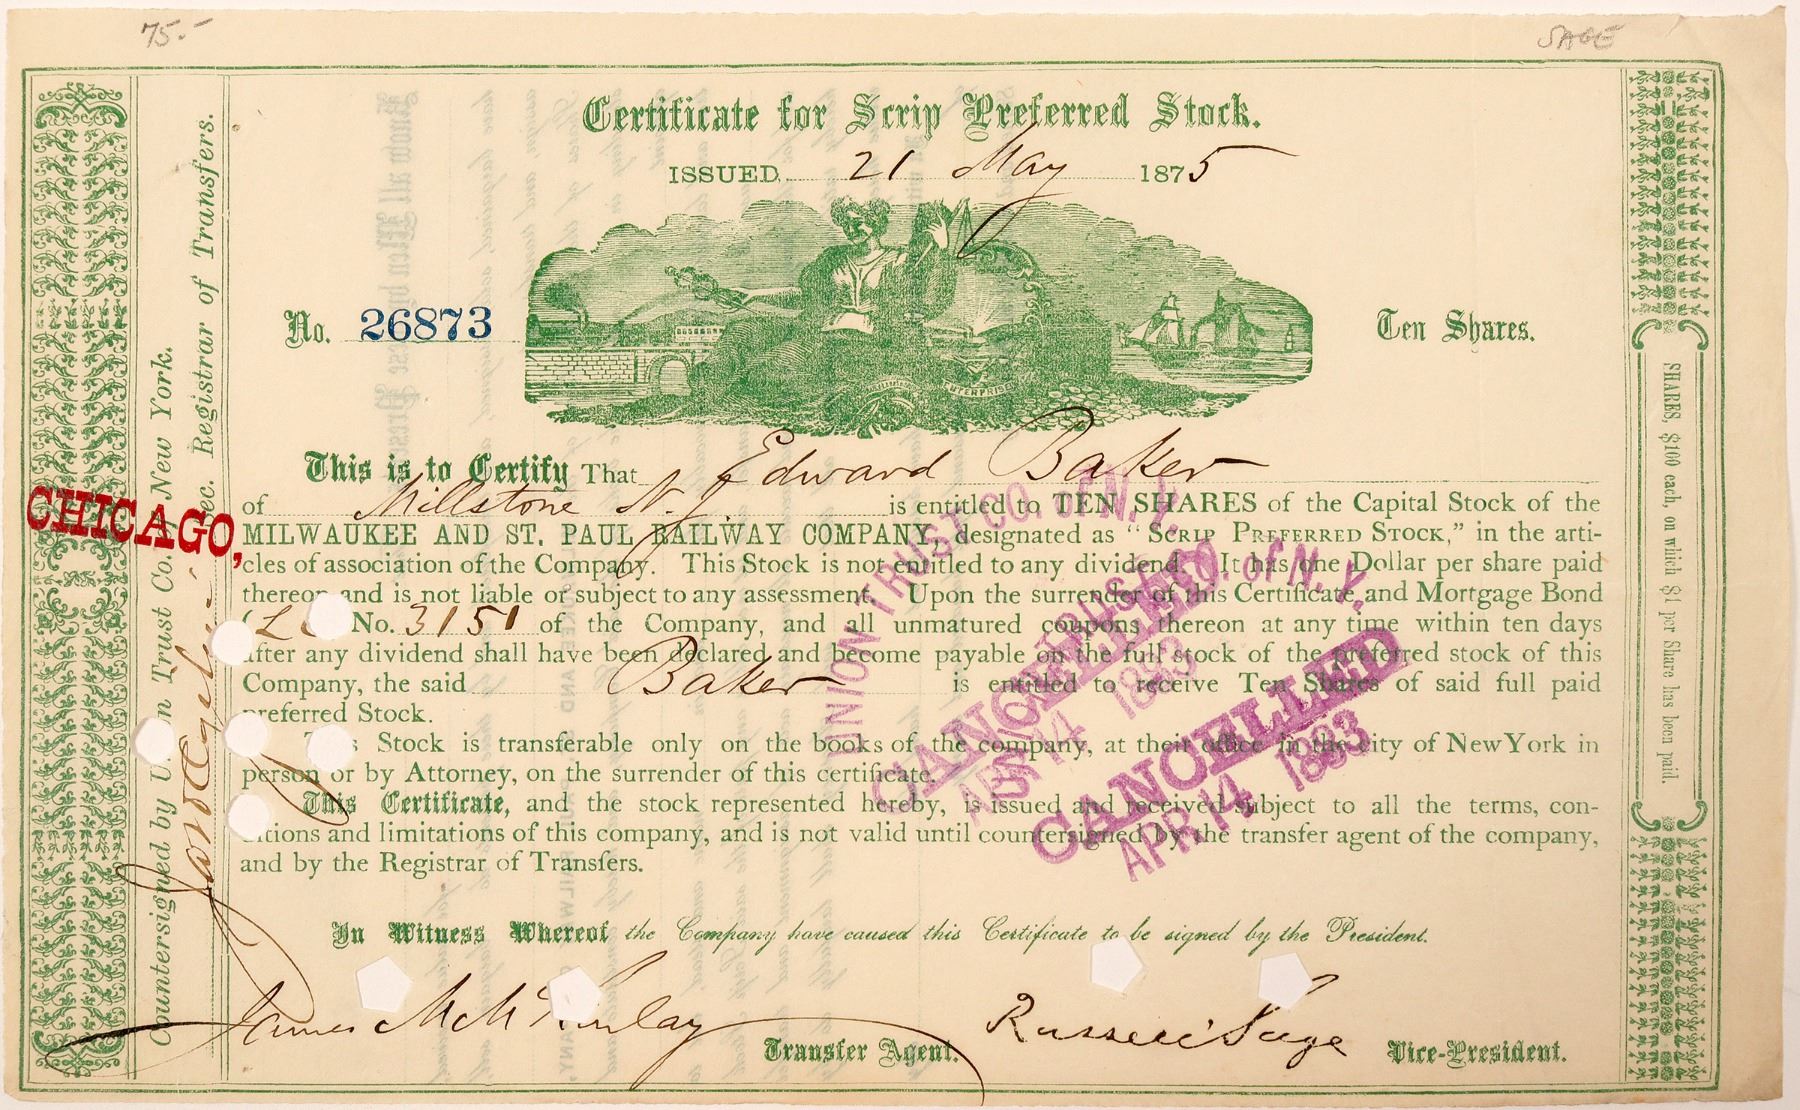 75.-
SAGE
Certificate for Scrip Preferred Stock.
ISSUED 21 May 1875
No. 26873
Ten Shares.
ENTERPRISE
This is to Certify That Edward Baker
of Millstone N. J. is entitled to TEN SHARES of the Capital Stock of the
CHICAGO,
MILWAUKEE AND ST. PAUL RAILWAY COMPANY, designated as "SCRIP PREFERRED STOCK," in the arti-
cles of association of the Company. This Stock is not entitled to any dividend. It has one Dollar per share paid
thereon and is not liable or subject to any assessment. Upon the surrender of this Certificate and Mortgage Bond
No. 3151 of the Company, and all unmatured coupons thereon at any time within ten days
after any dividend shall have been declared and become payable on the full stock of the preferred stock of this
Company, the said Baker is entitled to receive Ten Shares of said full paid
preferred Stock.
This Stock is transferable only on the books of the company, at their office in the city of New York in
person or by Attorney, on the surrender of this certificate.
This Certificate, and the stock represented hereby, is issued and received subject to all the terms, con-
ditions and limitations of this company, and is not valid until countersigned by the transfer agent of the company,
and by the Registrar of Transfers.
In Witness Whereof the Company have caused this Certificate to be signed by the President.
James M McKinlay
Transfer Agent.
Russell Sage
Vice-President.
Countersigned by Union Trust Co. New York.
Sec. Registrar of Transfers.
SHARES, $100 each, on which $1 per Share has been paid.
UNION TRUST CO. of N. Y.
CANCELLED
APR 14 1883
UNION TRUST CO. of N. Y.
CANCELLED
APR 14 1883